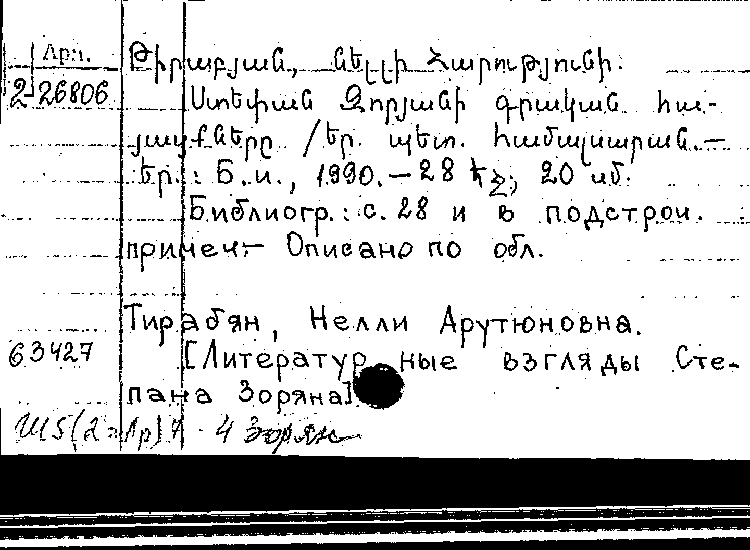 Арм. Թիրաբյան, Նելլի Հարությունի.
2-26806 Ստեփան Զորյանի գրական հա-
յացքները /Եր. պետ. համալսարան.—
Եր.: Б.и., 1990.—28 էջ; 20 սմ.
Библиогр.: с. 28 и в подстроч.
примеч.— Описано по обл.
Тирабян, Нелли Арутюновна.
63427 [Литературные взгляды Сте-
пана Зоряна].
Ш5(2=Ар)7-4 Зорян